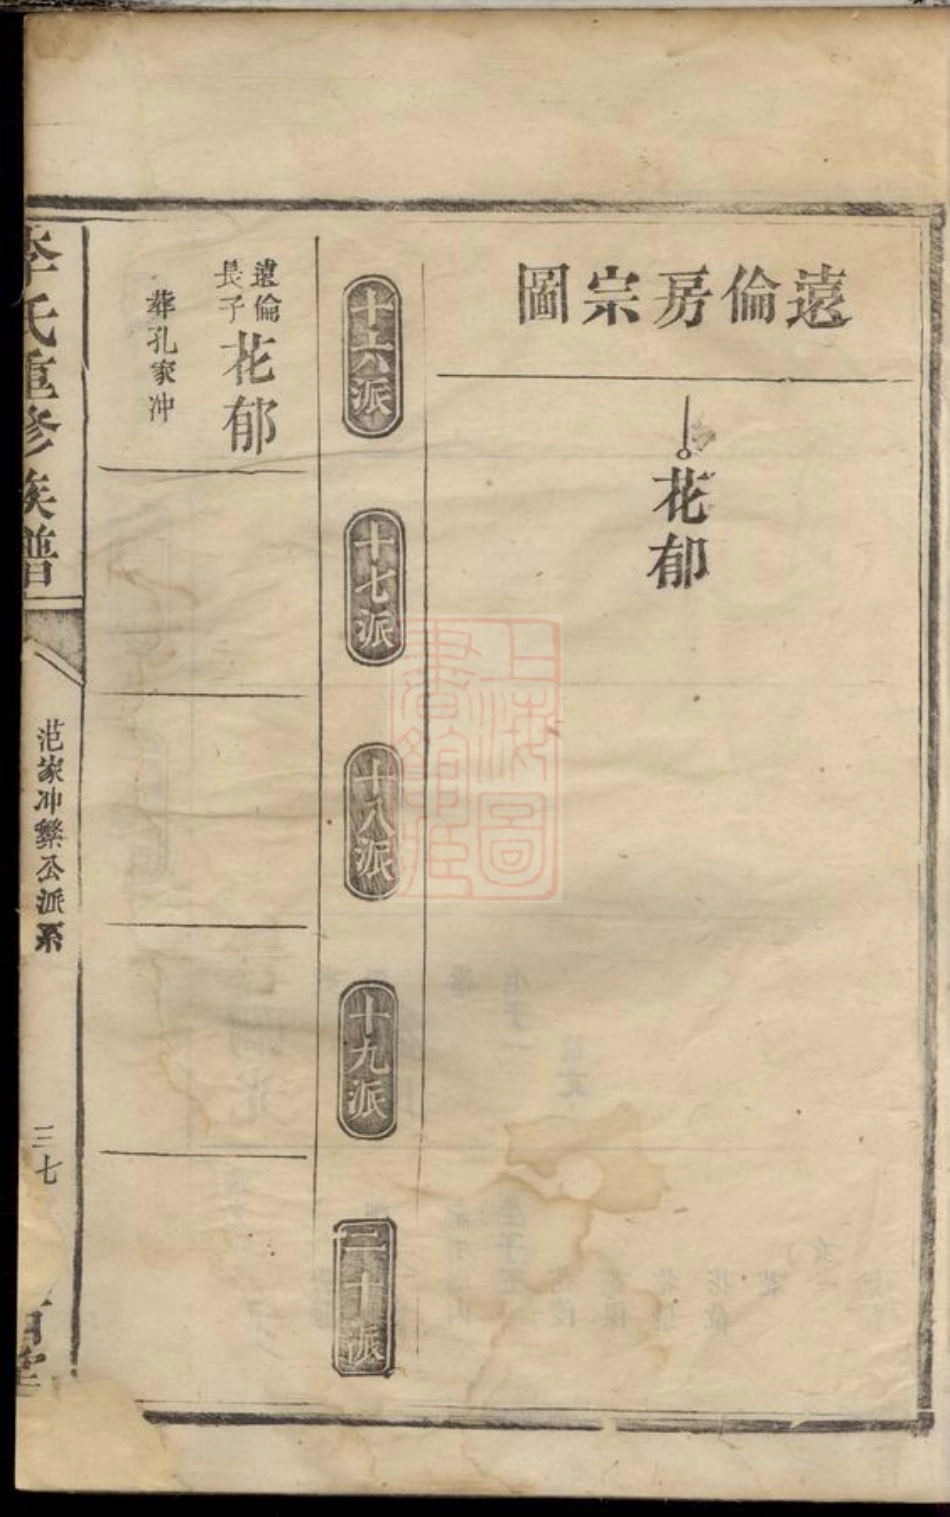 遠倫房宗圖
花郁
十六派
十七派
十八派
十九派
二十派
遠倫
長子
花郁
葬孔家冲
李氏重修族譜
范家冲鑾公派系
三七
上海圖書館